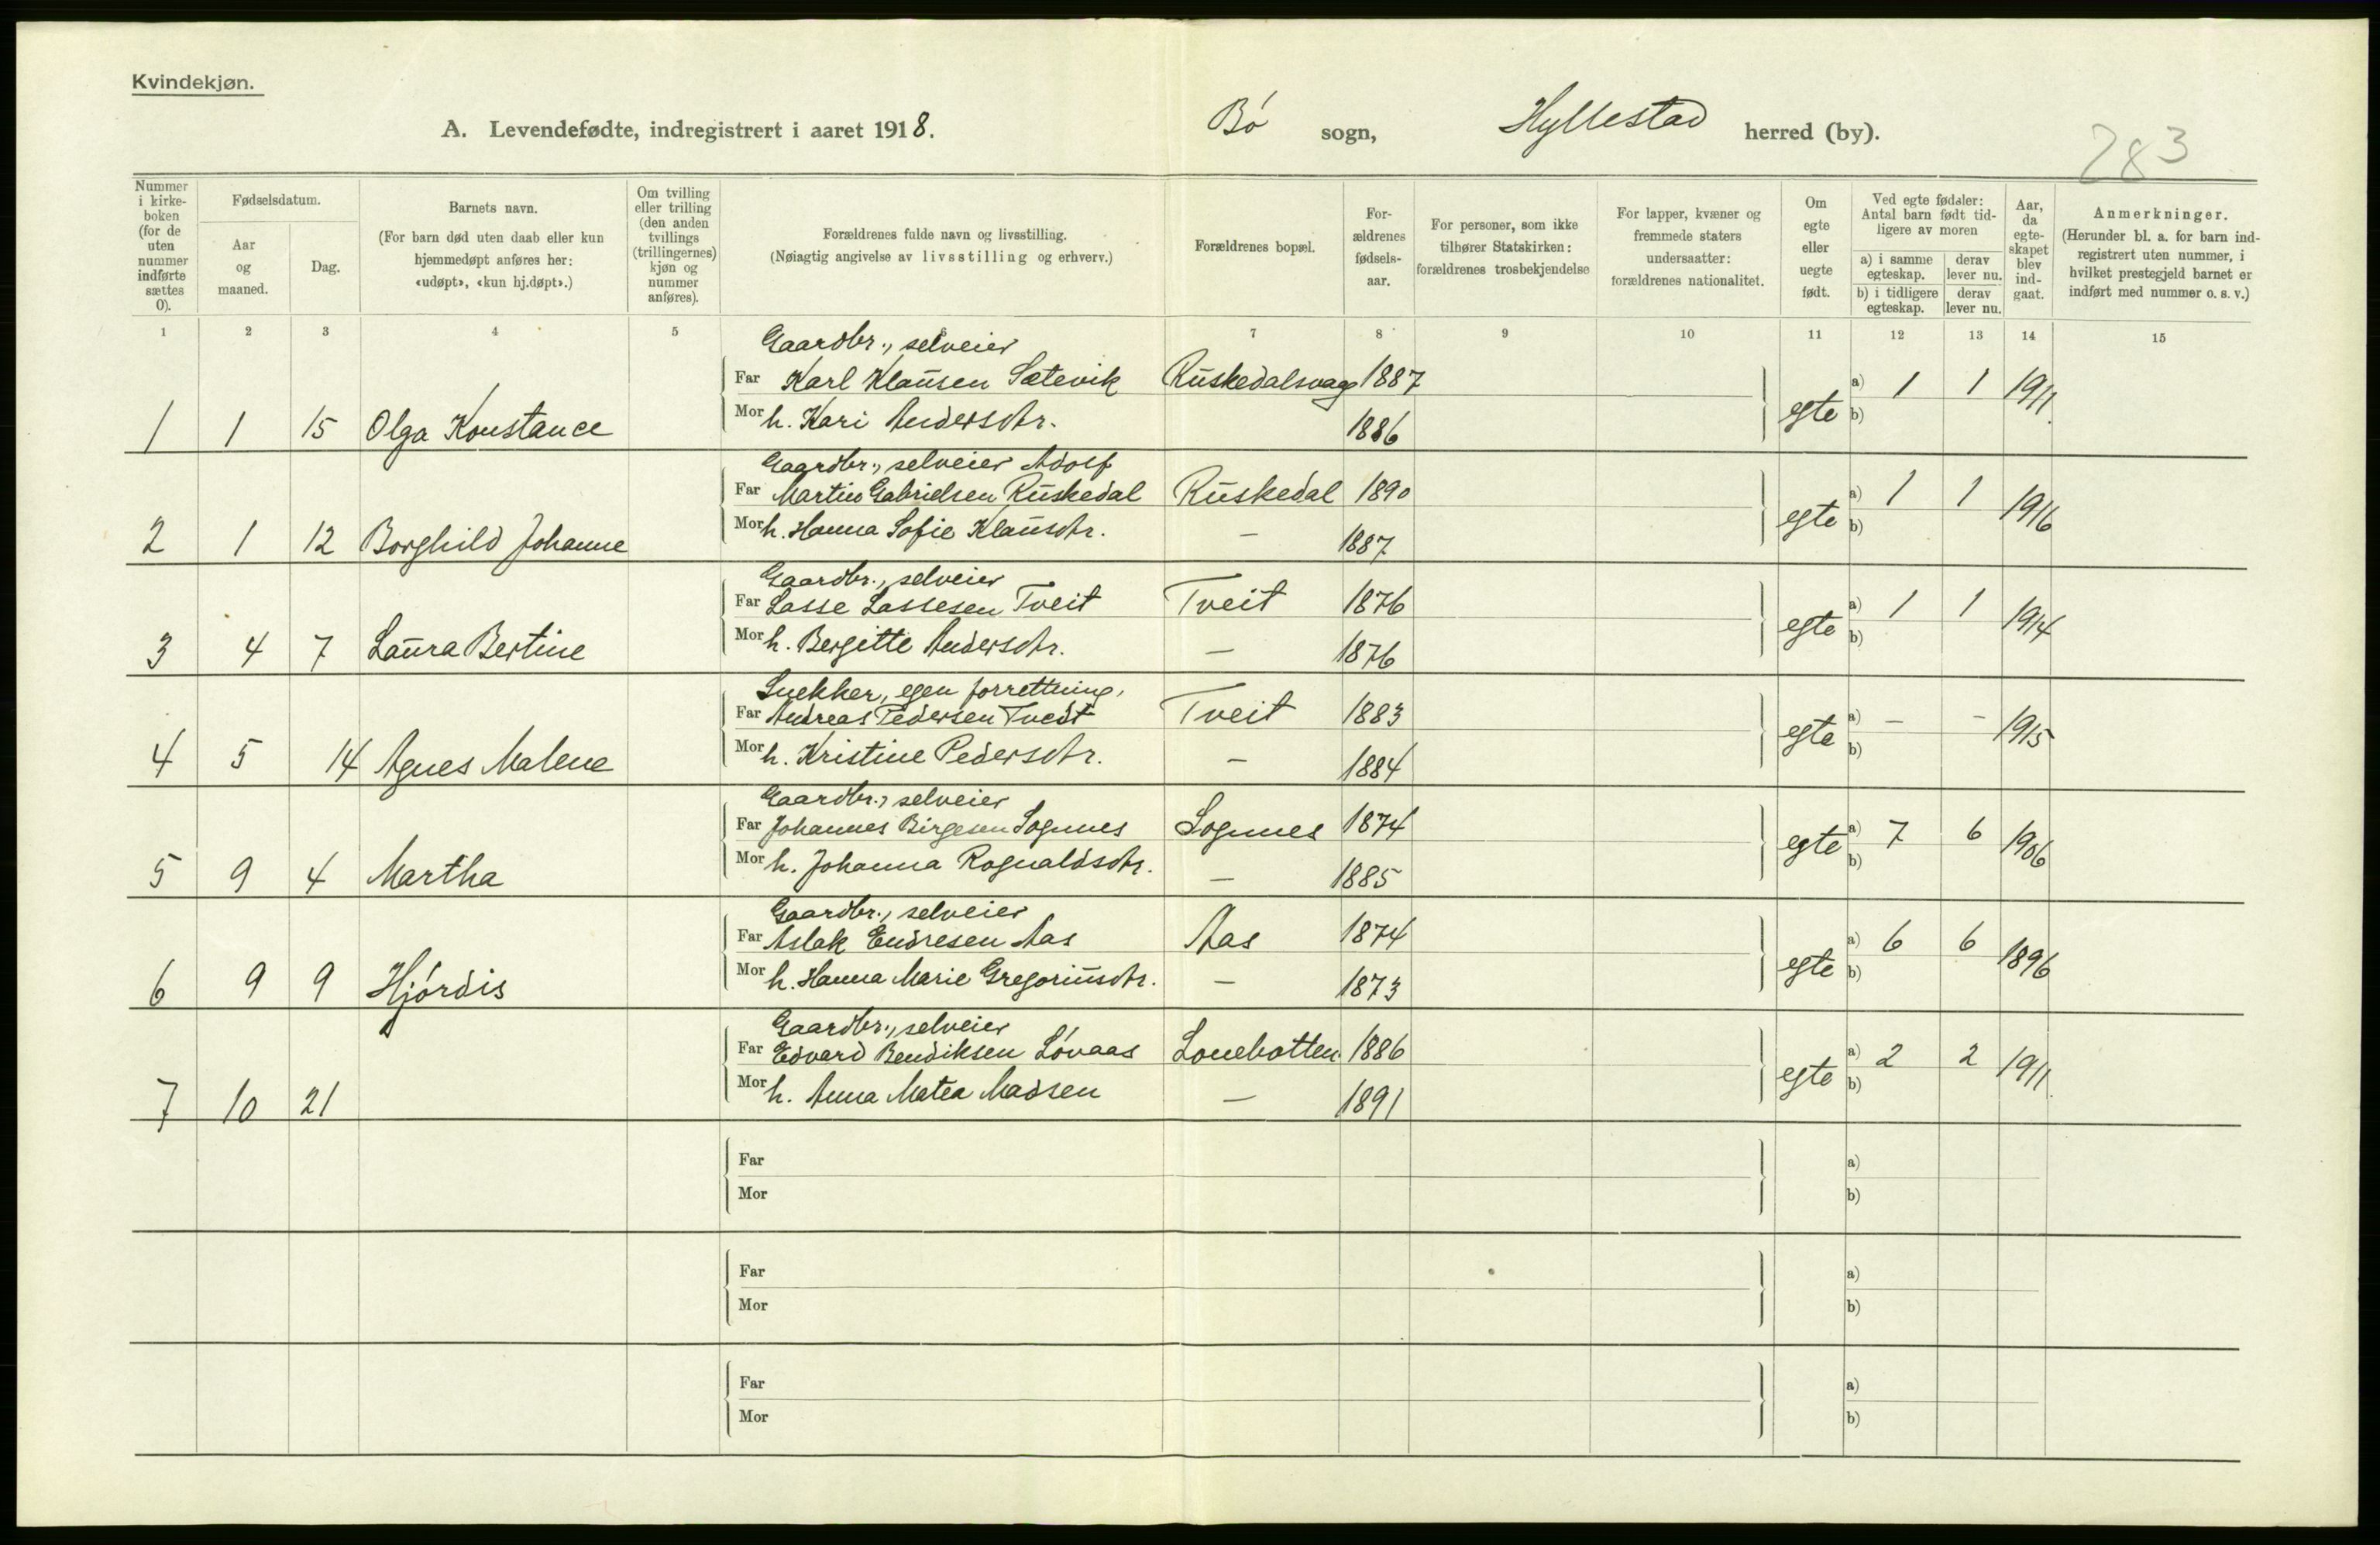 Kvindekjøn.
A. Levendefødte, indregistrert i aaret 1918.
Bø sogn, Hyllestad herred (by).
283
Nummer i kirkeboken (for de uten nummer indførte sættes 0).
Fødselsdatum.
Aar og maaned.
Dag.
Barnets navn.
(For barn død uten daab eller kun hjemmedøpt anføres her: «udøpt», «kun hj.døpt».)
Om tvilling eller trilling (den anden tvillings (trillingernes) kjøn og nummer anføres).
Forældrenes fulde navn og livsstilling.
(Nøiagtig angivelse av livsstilling og erhverv.)
Forældrenes bopæl.
Forældrenes fødselsaar.
For personer, som ikke tilhører Statskirken: forældrenes trosbekjendelse
For lapper, kvæner og fremmede staters undersaatter: forældrenes nationalitet.
Om egte eller uegte født.
Ved egte fødsler: Antal barn født tidligere av moren
a) i samme egteskap. derav lever nu.
b) i tidligere egteskap. derav lever nu.
Aar, da egteskapet blev indgaat.
Anmerkninger.
(Herunder bl. a. for barn indregistrert uten nummer, i hvilket prestegjeld barnet er indført med nummer o. s. v.)
1 2 3 4 5 7 8 9 10 11 12 13 14 15
Gaardbr., selveier
Far Karl Klaüsen Sætevik Rüskedalsvaag 1887 a) 1 1 1911.
1 1 15 Olga Konstance Mor h. Kari Andersdtr. 1886 egte b)
Gaardbr., selveier Adolf
Far Martin Gabrielsen Rüskedal Rüskedal 1890 a) 1 1 1916
2 1 12 Borghild Johanne Mor h. Hanna Sofie Klaüsdtr. — 1887 egte b)
Gaardbr., selveier
Far Lasse Lassesen Tveit Tveit 1876 a) 1 1 1914
3 4 7 Laüra Bertine Mor h. Bergitte Andersdtr. — 1876 egte b)
Snekker, egen forretning.
Far Andreas Pedersen Tvedt Tveit 1883 a) — - 1915
4 5 14 Agnes Malene Mor h. Kristine Pedersdtr. — 1884 egte b)
Gaardbr., selveier
Far Johannes Birgesen Sognnes Sognnes 1874 a) 7 6 1906
5 9 4 Martha Mor h. Johanna Rognaldsdtr. — 1885 egte b)
Gaardbr., selveier
Far Aslak Endresen Aas Aas 1874 a) 6 6 1896
6 9 9 Hjørdis Mor h. Hanna Marie Gregoriüsdtr. — 1873 egte b)
Gaardbr., selveier
Far Edvard Bendiksen Løvaas Lonebotten 1886 a) 2 2 1911.
7 10 21 Mor h. Anna Matea Madsen — 1891 egte b)
Far a)
Mor b)
Far a)
Mor b)
Far a)
Mor b)